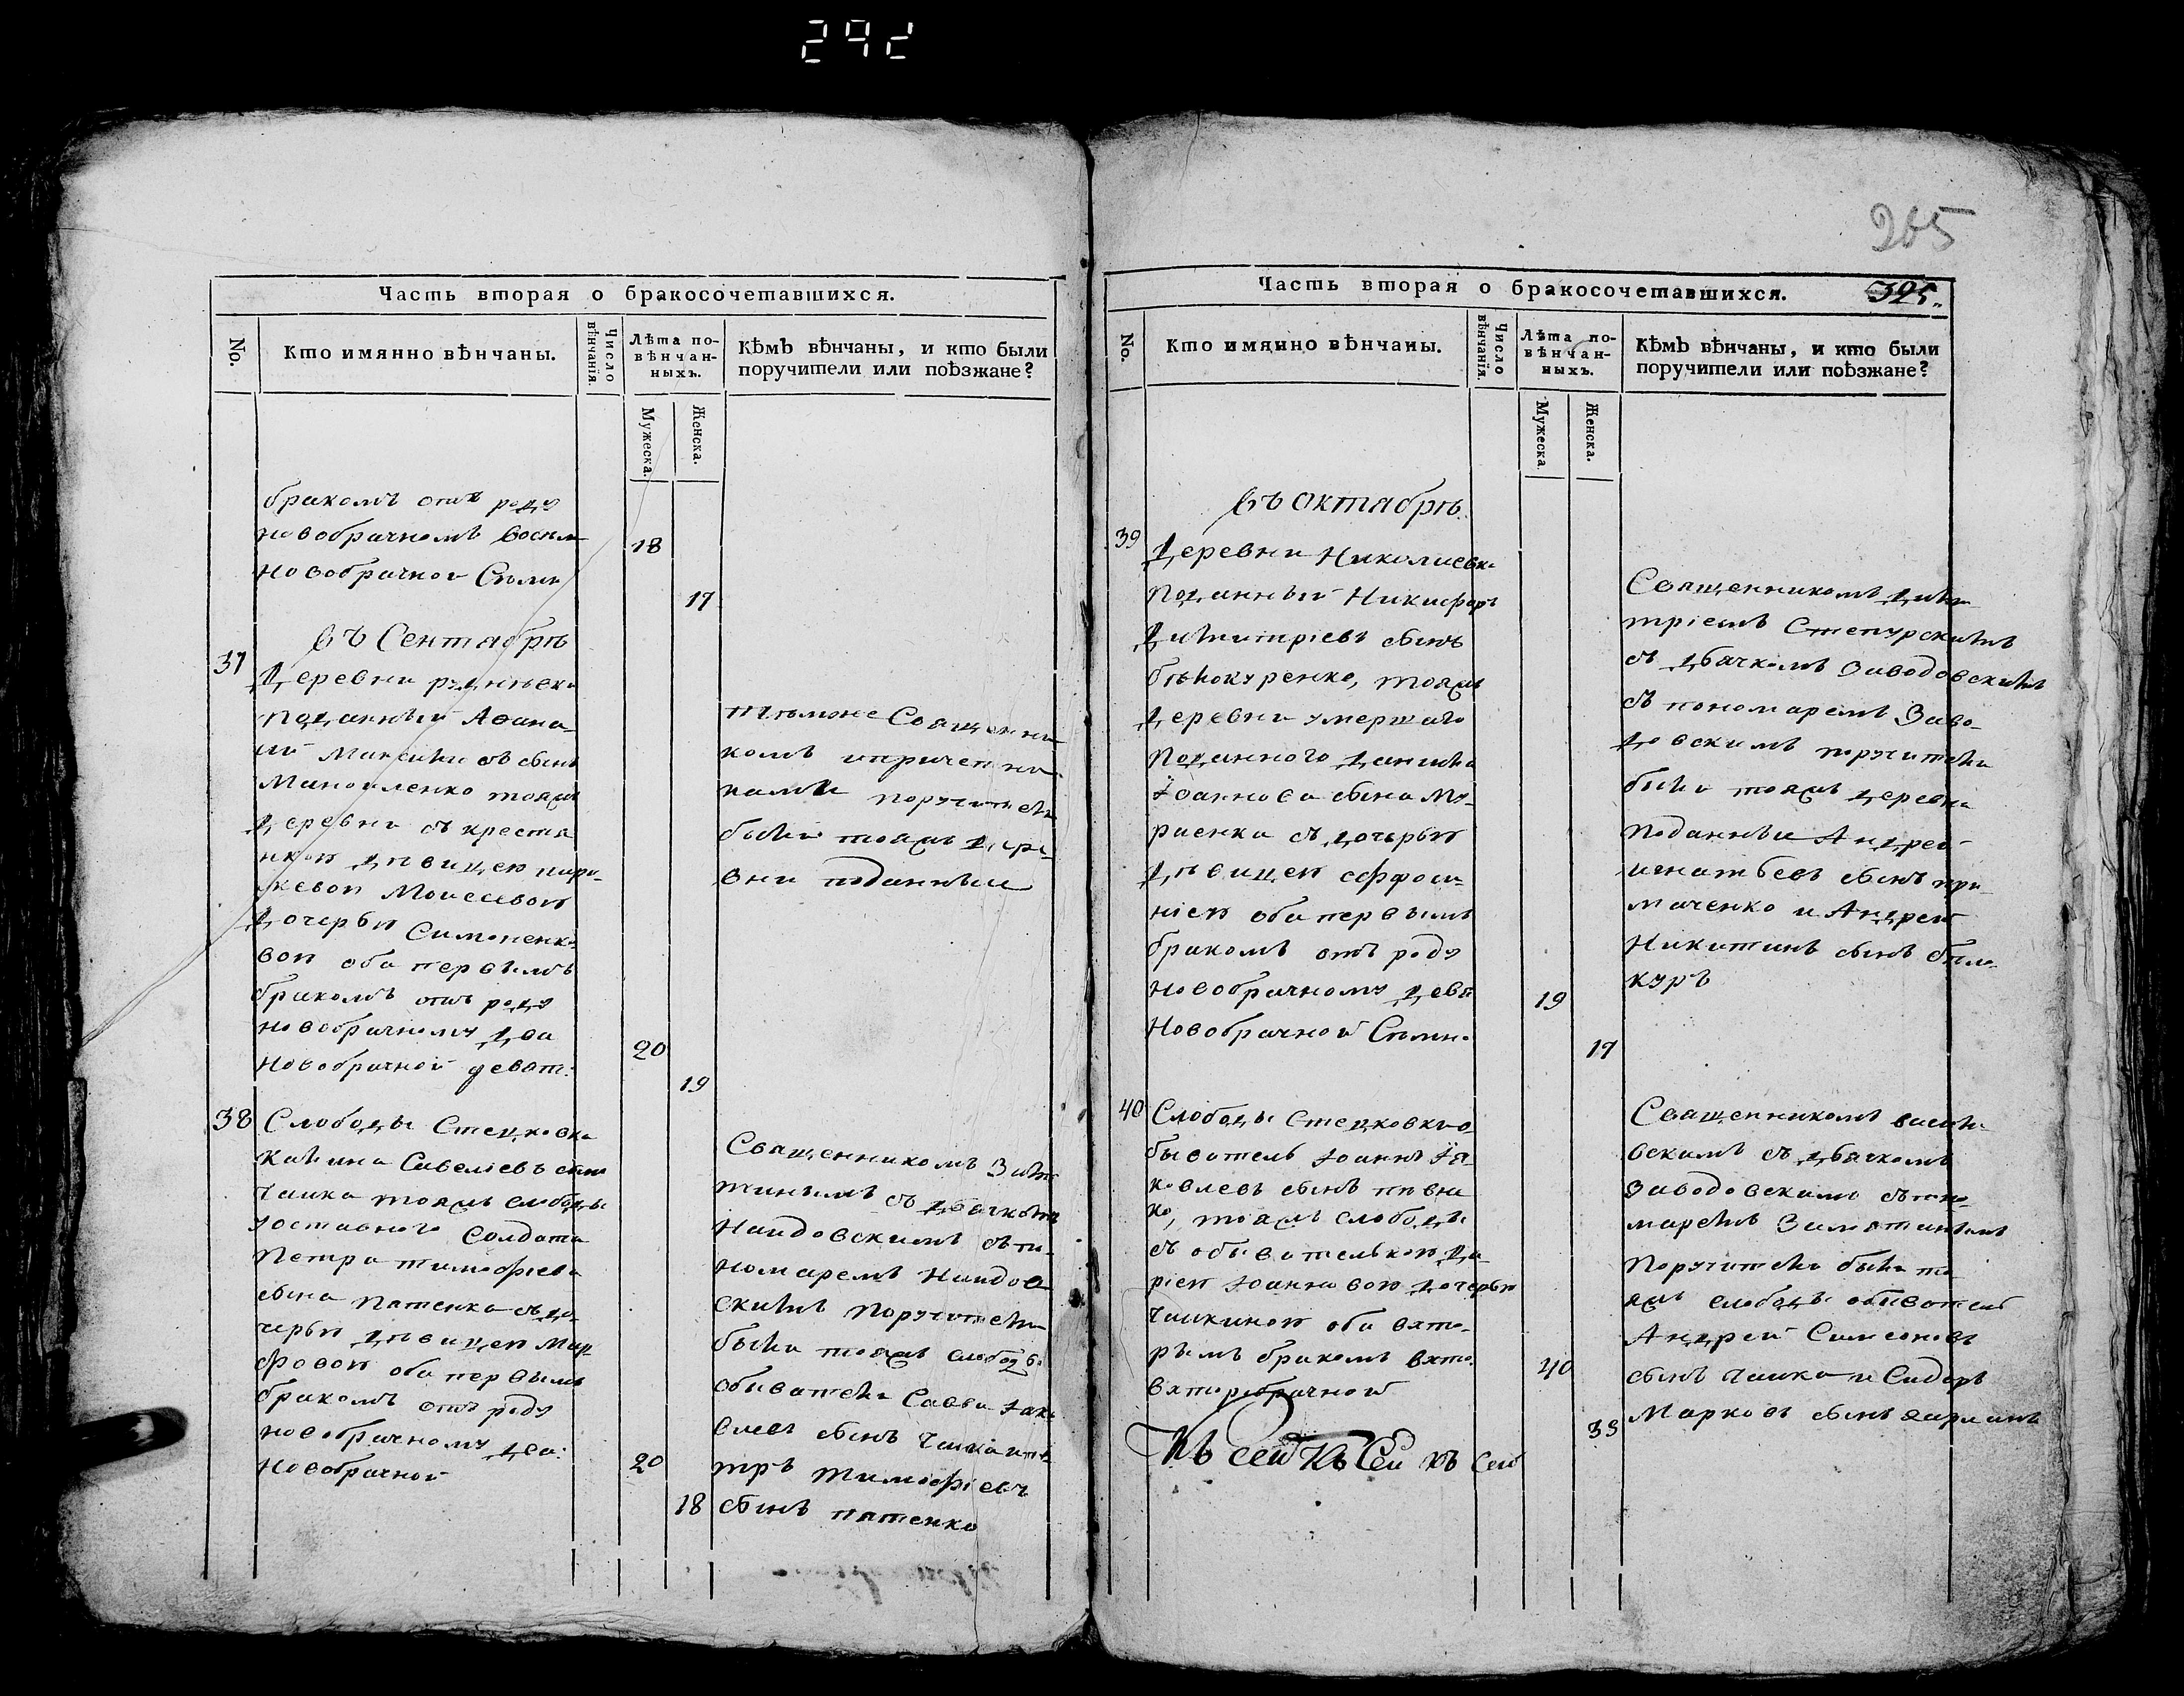 292
265
Часть вторая о бракосочетавшихся.
No.
Кто имянно вѣнчаны.
Число вѣнчанія.
Лѣта по-
вѣнчан-
ныхъ.
Кѣмъ вѣнчаны, и кто были
поручители или поѣзжане?
Мужеска.
Женска.
бракомъ отъ роду
новобрачномъ восем
18
Новобрачной Семн
17
въ Сентябрѣ
37
Деревни
подданный Афана
ий сынъ
Маноиленко тояжъ
деревни съ крестя
нкою девицею пара
скевою Моисеевою
дочерью Симоненко
вою оба первымъ
бракомъ отъ роду
новобрачному два
20
Новобрачной девят:
19
темже Священни
комъ
поручители
были тояжъ дере
вни поданныи
38
Слободы Стецковки
Савелиевъ сынъ
Чайка тояжъ слободы
солдата
Петра тимофиева
сына патенка съ до
черью девицею Мар
фовою оба первымъ
бракомъ отъ роду
новобрачному два:
20
Новобрачной
18
Священникомъ
съ дьячкомъ
съ по
номаремъ
поручители
были тояжъ слободы
обыватели Савва Яко
влевъ сынъ Чайка и пе
тръ тимофиевъ
сынъ патенко
Часть вторая о бракосочетавшихся.
325.
No.
Кто имянно вѣнчаны.
Число вѣнчанія.
Лѣта по-
вѣнчан-
ныхъ.
Кѣмъ вѣнчаны, и кто были
поручители или поѣзжане?
Мужеска.
Женска.
въ октябрѣ.
39
Деревни Николаевки
поданный Никифоръ
Димитріевъ сынъ
белокуренко, тояжъ
деревни умершаго
поданного данила
Іоаннова сына Му-
раенка съ дочерью
девицею еффоси-
ніею оба первымъ
бракомъ отъ роду
новобрачному девя
19
Новобрачной Семн.
17
Священникомъ дими
тріемъ Степурскимъ
съ дьячкомъ Заводовскимъ
съ пономаремъ Заво-
довскимъ поручители
были тояжъ деревни
поданные Андрей
игнатьевъ сынъ при
маченко и Андрей
Никитинъ сынъ бело
куръ
40
Слободы Стецковки о-
быватель Іоаннъ Іа-
ковлевъ сынъ певне
ко, тояжъ слободы
съ обывателькою да
ріею Іоанновою дочерью
Чайкиною оба вто-
рымъ бракомъ вто.
40
вторебрачной
35
Священникомъ васил
вскимъ съ дьячкомъ
Заводовскимъ съ поно
маремъ Замятинымъ
Поручители были то
яжъ слободы обыватели
Андрей Симеоновъ
сынъ Чайка и Сидоръ
Марковъ сынъ
Къ сей Къ Сей къ сей